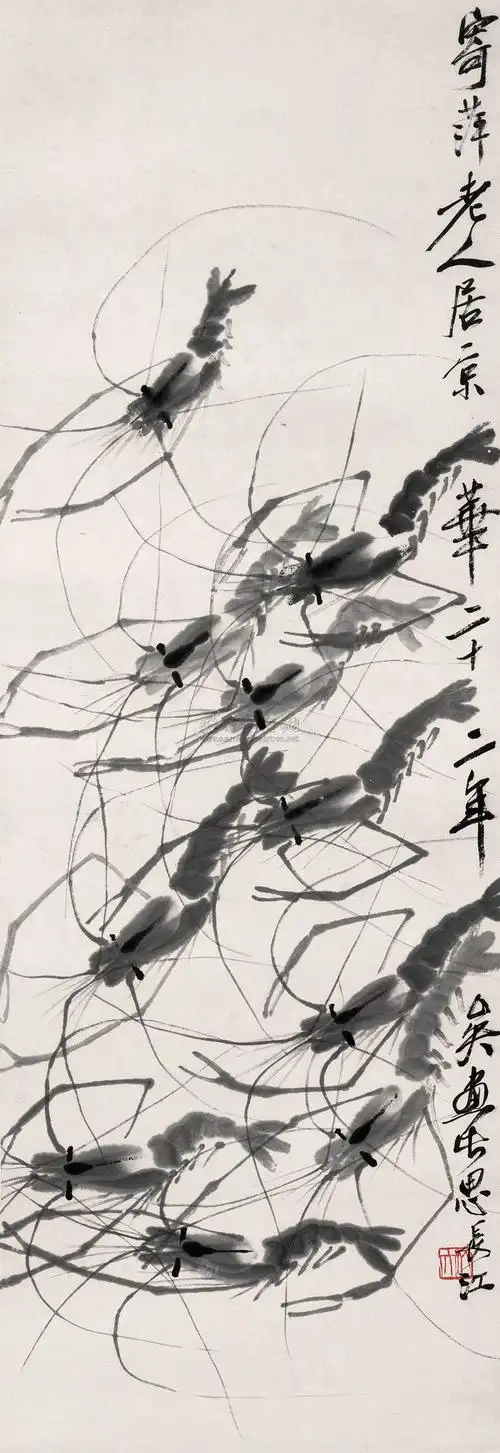 寄萍老人居京華二十二年
画出思長江